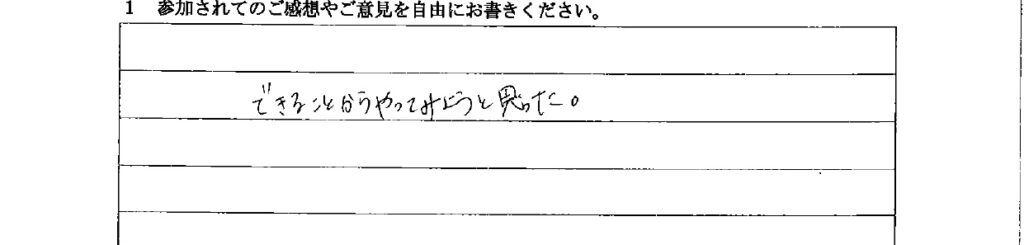 1 参加されてのご感想やご意見を自由にお書きください。
できることからやってみようと思った。